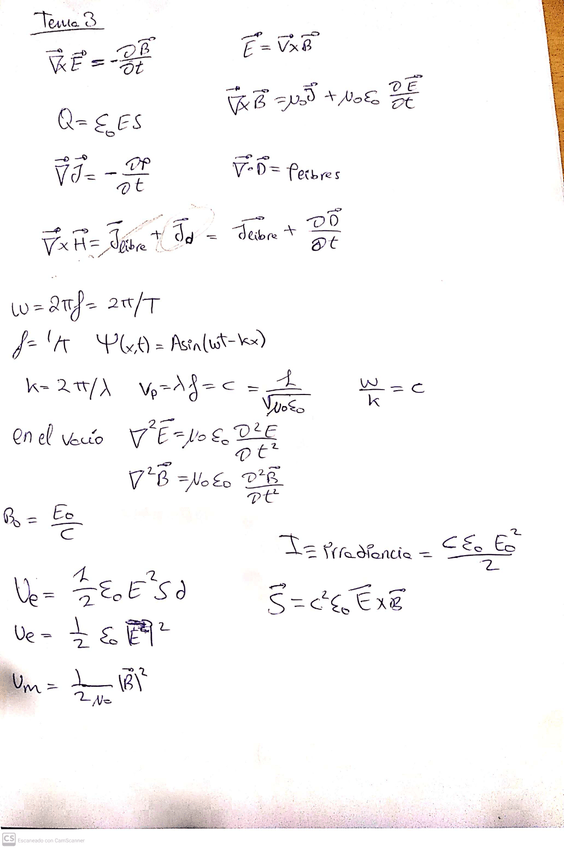 Tema 3
∇⃗×E⃗ = -∂B⃗/∂t    E⃗ = ∇⃗×B⃗
∇⃗×B⃗ = μ₀J⃗ + μ₀ε₀ ∂E⃗/∂t
Q = ε₀ES
∇⃗J⃗ = -∂ρ/∂t    ∇⃗·D⃗ = ρlibres
∇⃗×H⃗ = J⃗libre + J⃗d = J⃗libre + ∂D⃗/∂t
ω = 2πf = 2π/T
f = 1/T    Ψ(x,t) = A sin(ωt-kx)
k = 2π/λ    Vp = λf = c = 1/√(μ₀ε₀)    ω/k = c
en el vacío    ∇²E⃗ = μ₀ε₀ ∂²E/∂t²
∇²B⃗ = μ₀ε₀ ∂²B⃗/∂t²
B₀ = E₀/c
I ≡ irradiancia = cε₀E₀²/2
Ue = 1/2 ε₀E²Sd    S⃗ = c²ε₀ E⃗×B⃗
ue = 1/2 ε₀ |E⃗|²
um = 1/2μ₀ |B⃗|²
CS Escaneado con CamScanner